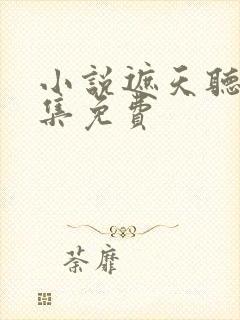 小說遮天聽
集免費
荼靡